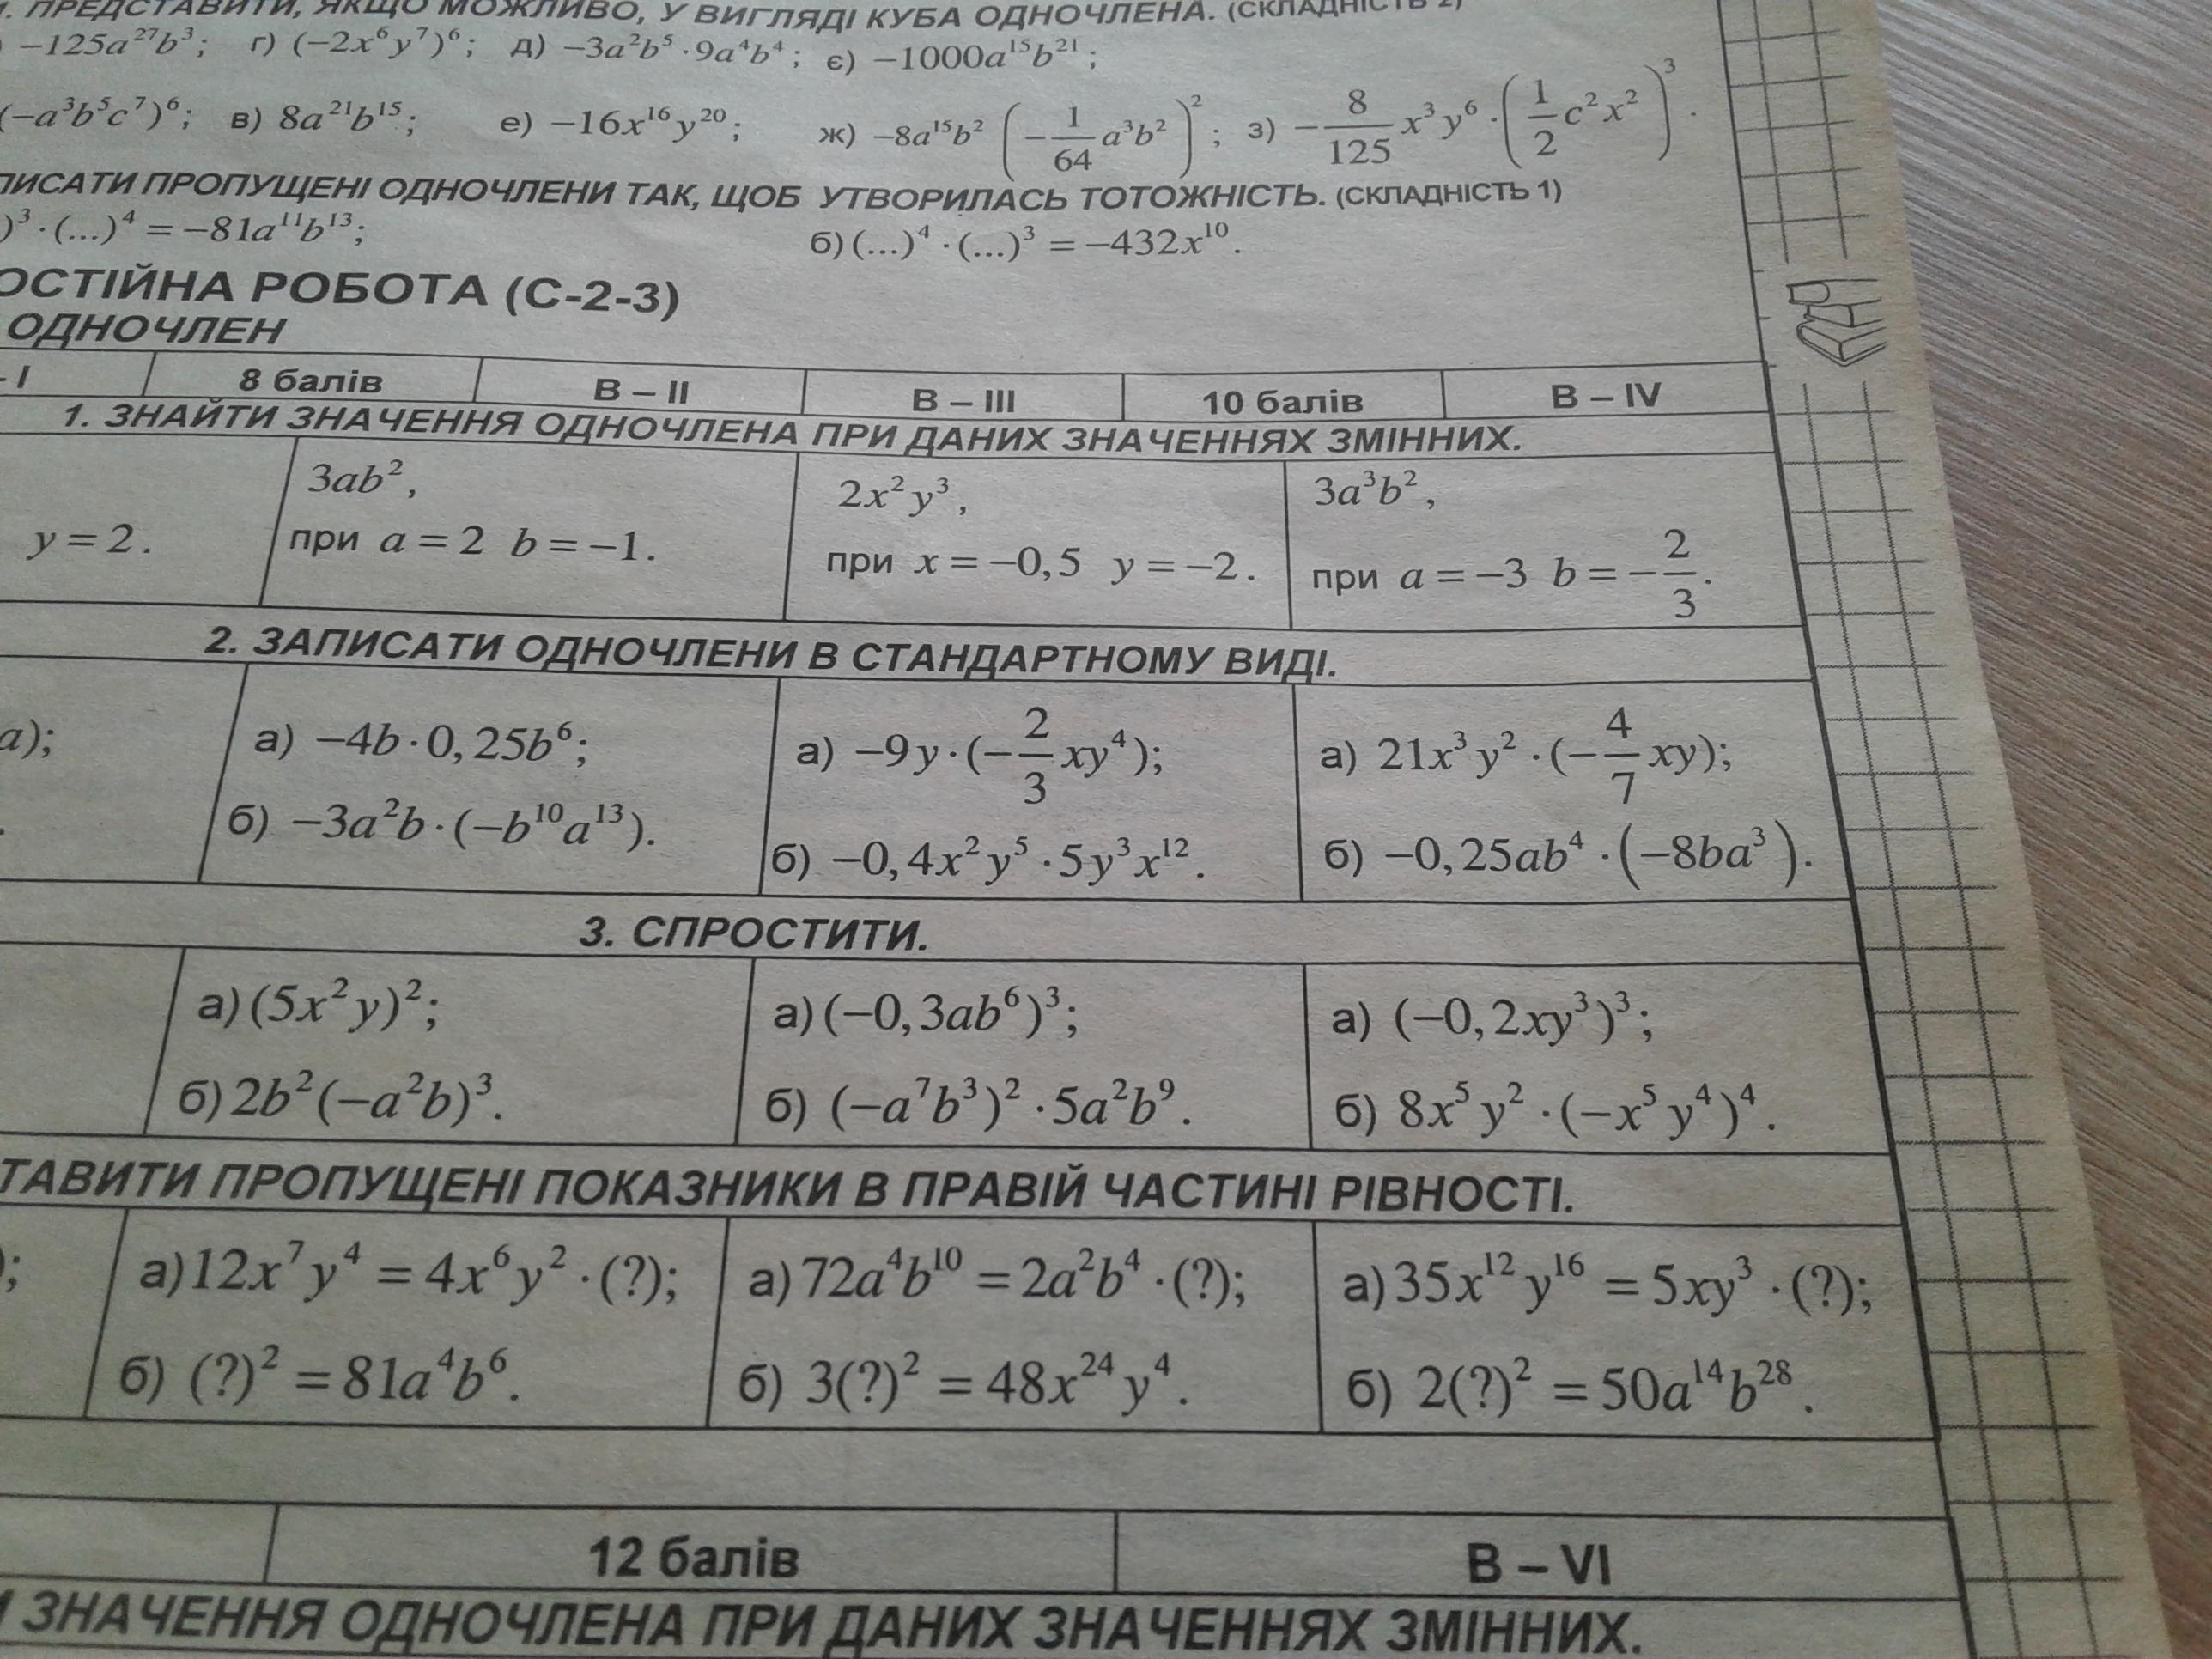 . ПРЕДСТАВИТИ, ЯКЩО МОЖЛИВО, У ВИГЛЯДІ КУБА ОДНОЧЛЕНА. (СКЛАДНІСТЬ 2)
) −125a²⁷b³; г) (−2x⁶y⁷)⁶; д) −3a²b⁵·9a⁴b⁴; є) −1000a¹⁵b²¹;
(−a³b⁵c⁷)⁶; в) 8a²¹b¹⁵; е) −16x¹⁶y²⁰; ж) −8a¹⁵b² (−1/64 a³b²)²; з) −8/125 x³y⁶·(1/2 c²x²)³.
ПИСАТИ ПРОПУЩЕНІ ОДНОЧЛЕНИ ТАК, ЩОБ УТВОРИЛАСЬ ТОТОЖНІСТЬ. (СКЛАДНІСТЬ 1)
)³·(...)⁴ = −81a¹¹b¹³; б) (...)⁴·(...)³ = −432x¹⁰.
ОСТІЙНА РОБОТА (С-2-3)
ОДНОЧЛЕН
- I 8 балів В – II В – III 10 балів В – IV
1. ЗНАЙТИ ЗНАЧЕННЯ ОДНОЧЛЕНА ПРИ ДАНИХ ЗНАЧЕННЯХ ЗМІННИХ.
3ab², 2x²y³, 3a³b²,
y = 2. при a = 2 b = −1. при x = −0,5 y = −2. при a = −3 b = −2/3.
2. ЗАПИСАТИ ОДНОЧЛЕНИ В СТАНДАРТНОМУ ВИДІ.
a); а) −4b·0,25b⁶; а) −9y·(−2/3 xy⁴); а) 21x³y²·(−4/7 xy);
. б) −3a²b·(−b¹⁰a¹³). б) −0,4x²y⁵·5y³x¹². б) −0,25ab⁴·(−8ba³).
3. СПРОСТИТИ.
а) (5x²y)²; а) (−0,3ab⁶)³; а) (−0,2xy³)³;
б) 2b²(−a²b)³. б) (−a⁷b³)²·5a²b⁹. б) 8x⁵y²·(−x⁵y⁴)⁴.
ТАВИТИ ПРОПУЩЕНІ ПОКАЗНИКИ В ПРАВІЙ ЧАСТИНІ РІВНОСТІ.
); а) 12x⁷y⁴ = 4x⁶y²·(?); а) 72a⁴b¹⁰ = 2a²b⁴·(?); а) 35x¹²y¹⁶ = 5xy³·(?);
б) (?)² = 81a⁴b⁶. б) 3(?)² = 48x²⁴y⁴. б) 2(?)² = 50a¹⁴b²⁸.
12 балів В – VI
И ЗНАЧЕННЯ ОДНОЧЛЕНА ПРИ ДАНИХ ЗНАЧЕННЯХ ЗМІННИХ.